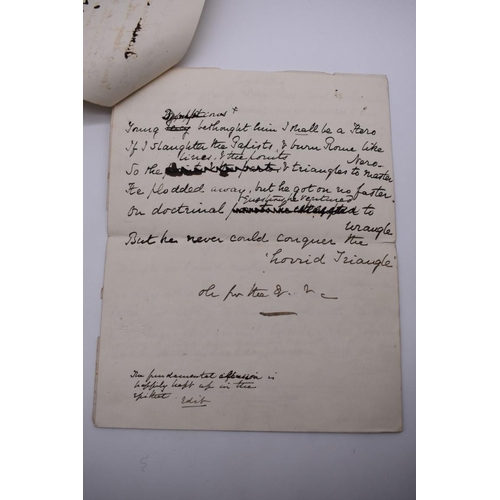 x
Young bethought him I shall be a Hero
If I slaughter the Papists, & burn Rome like
Nero-
lines, & the points
So the & triangles to master
He plodded away, but he got on no faster.
questions he ventured
On doctrinal to
wrangle
But he never could conquer the
'horrid Triangle'
oh for the &c
The fundamental allusion is
happily kept up in the
epithet Edit